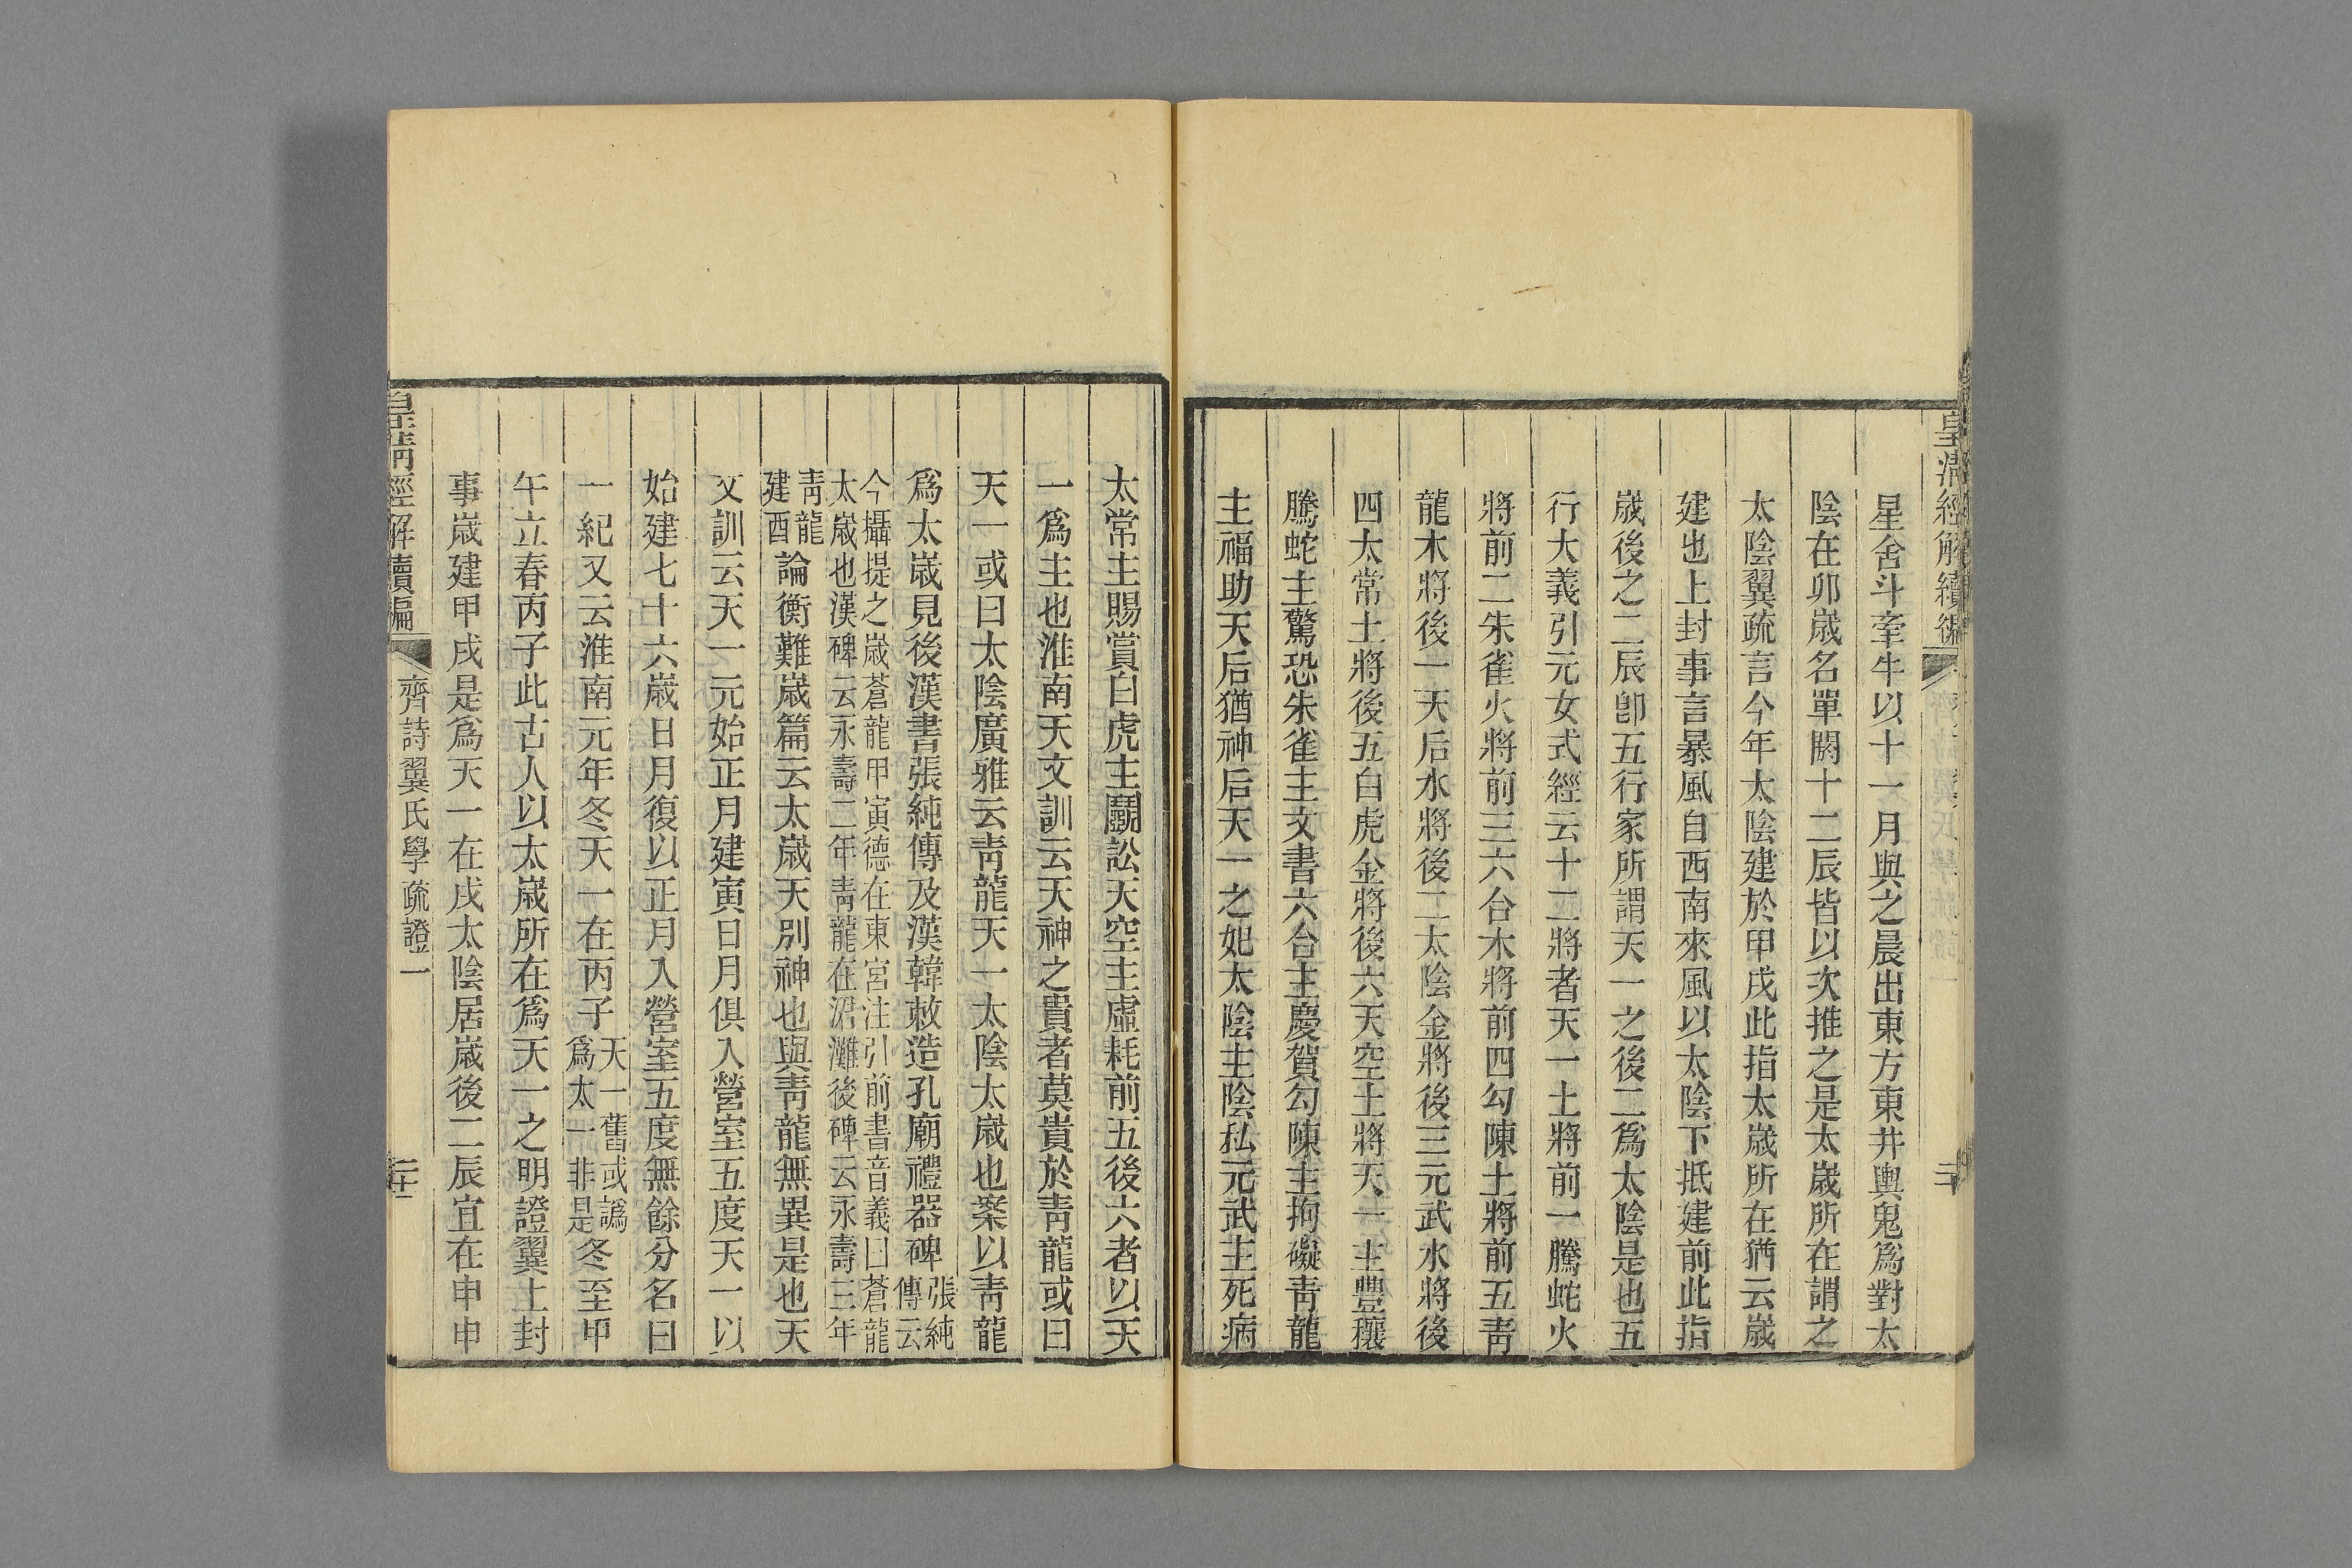 皇清經解續編
星舍斗牽牛以十一月與之晨出東方東井輿鬼爲對太
陰在卯歲名單閼十二辰皆以次推之是太歲所在謂之
太陰翼疏言今年太陰建於甲戌此指太歲所在猶云歲
建也上封事言暴風自西南來風以太陰下抵建前此指
歲後之二辰卽五行家所謂天一之後二爲太陰是也五
行大義引元女式經云十二將者天一土將前一騰蛇火
將前二朱雀火將前三六合木將前四勾陳土將前五靑
龍木將後一天后水將後二太陰金將後三元武水將後
四太常土將後五白虎金將後六天空土將天一主豐穰
騰蛇主驚恐朱雀主文書六合主慶賀勾陳主拘礙靑龍
主福助天后猶神后天一之妃太陰主陰私元武主死病
太常主賜賞白虎主鬭訟天空主虛耗前五後六者以天
一爲主也淮南天文訓云天神之貴者莫貴於靑龍或曰
天一或曰太陰廣雅云靑龍天一太陰太歲也案以靑龍
爲太歲見後漢書張純傳及漢韓敕造孔廟禮器碑張純傳云
今攝提之歲蒼龍甲寅德在東宮注引前書音義曰蒼龍
太歲也漢碑云永壽二年靑龍在涒灘後碑云永壽三年
靑龍建酉論衡難歲篇云太歲天別神也與靑龍無異是也天
文訓云天一元始正月建寅日月俱入營室五度天一以
始建七十六歲日月復以正月入營室五度無餘分名曰
一紀又云淮南元年冬天一在丙子天一舊或譌爲太一非是冬至甲
午立春丙子此古人以太歲所在爲天一之明證翼上封
事歲建甲戌是爲天一在戌太陰居歲後二辰宜在申申
皇清經解續編
齊詩翼氏學疏證一